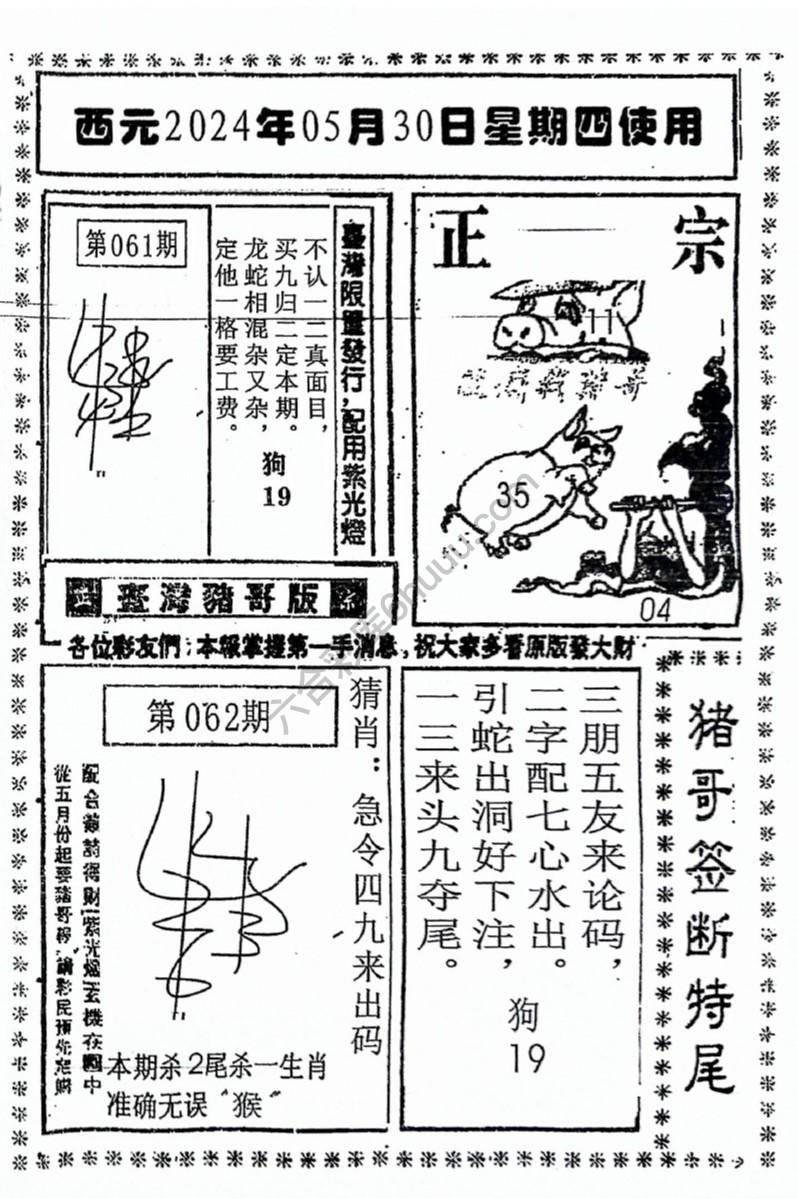 西元2024年05月30日星期四使用
第061期
不认一二真面目，
买九归二定本期。
龙蛇相混杂又杂，
定他一格要工费。
狗
19
臺灣限量發行，配用紫光燈
正宗
11
35
04
臺灣豬哥版
各位彩友們：本報掌握第一手消息，祝大家多看原版發大財
第062期
猜肖：急令四九来出码
從五月份起要豬哥報，請彩民預先定購
本期杀2尾杀一生肖
准确无误“猴”
三朋五友来论码，
二字配七心水出。
引蛇出洞好下注，
一三来头九夺尾。
狗
19
猪哥签断特尾
六合彩库6huuu.com